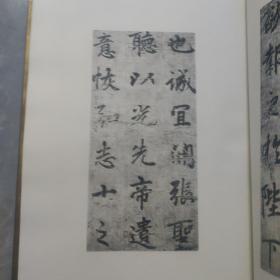 報之於陛下
也誠宜開張聖
聽以光先帝遺
悳恢弘志士之